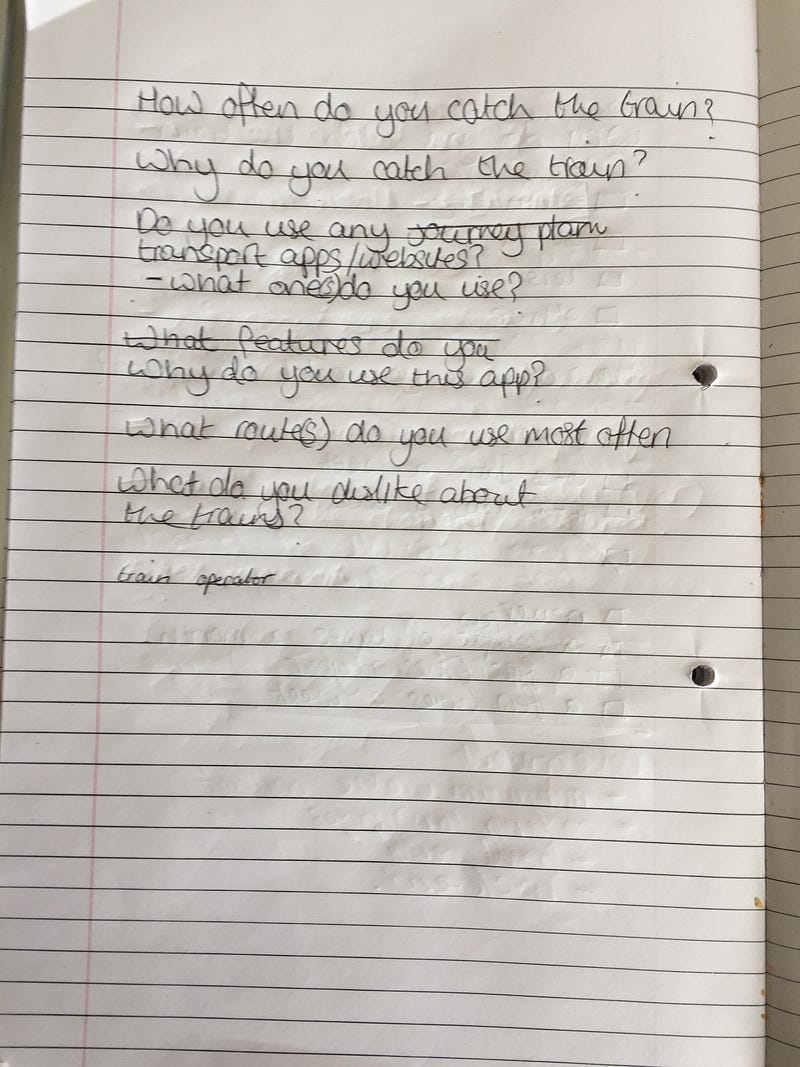 How often do you catch the train?
Why do you catch the train?
Do you use any journey plann
transport apps/websites?
- what one(s) do you use?
What features do you
Why do you use this app?
What route(s) do you use most often
What do you dislike about
the trains?
train operator